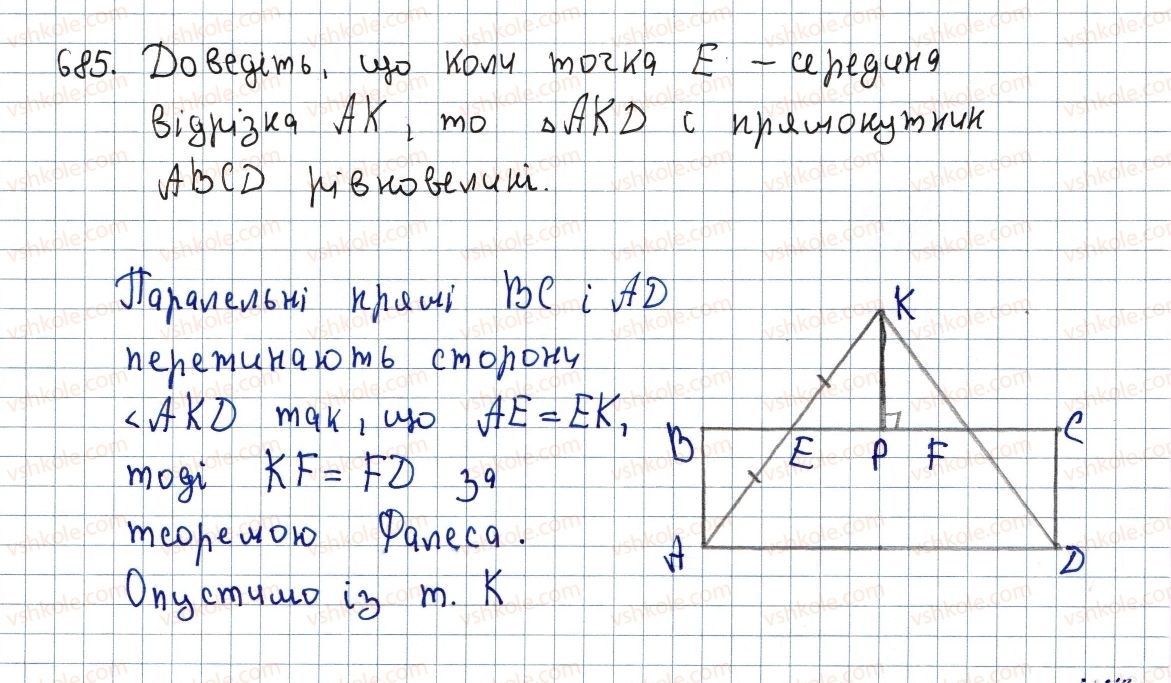 685. Доведіть, що коли точка E – середина
відрізка AK, то △AKD і прямокутник
ABCD рівновеликі.
Паралельні прямі BC і AD
перетинають сторони
∠AKD так, що AE = EK,
тоді KF = FD за
теоремою Фалеса.
Опустимо із т. K
K
B E P F C
A D
vshkole.com